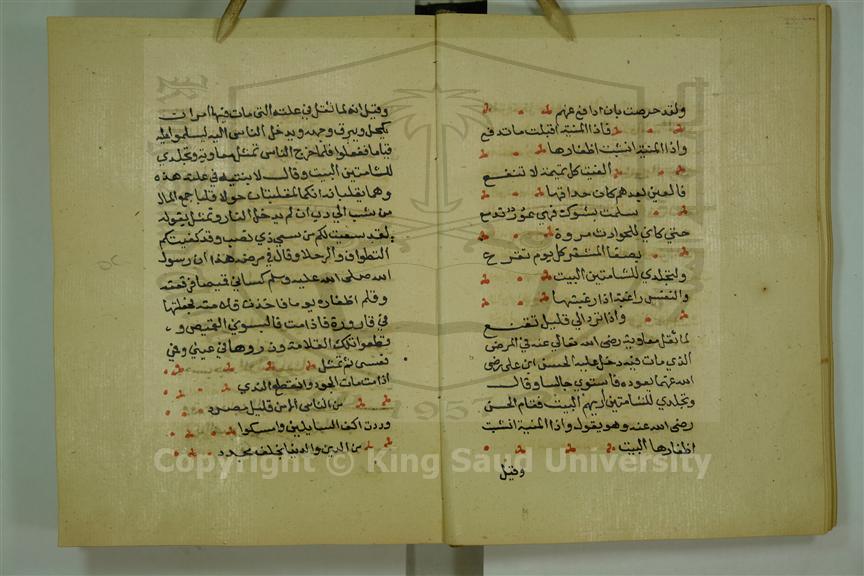 ولقد حرصت بان ادافع عنهم
فاذا المنية اقبلت ما تدفع
واذا المنية انشبت اظفارها
الفيت كل تميمة لا تنفع
فالعين بعدهم كان حداقها
سملت بشوك فهي عور تدمع
حتى كاني للحوادث مروة
بصفا المشقر كل يوم تقرع
وتجلدي للشامتين البيت
والنفس راغبة اذا رغبتها
واذا ترد الى قليل تقنع
لما ثقل معاوية رضى الله تعالى عنه في المرض
الذي مات فيه دخل عليه الحسن ابن على رضى
الله عنهما يعوده فاستوى جالسا وقال
وتجلدي للشامتين اريهم البيت فقام الحسن
رضى الله عنه وهو يقول واذا المنية انشبت
اظفارها البيت
وقيل
وقيل انه لما ثقل في علته التى مات فيها امر ان
يكحل ويبرق وجهه ويدخل الناس اليه ليسلموا عليه
قياما ففعلوا فلما خرج الناس تمثل معاوية وتجلدي
للشامتين البيت وقال لابنتيه في علته هذه
وهما يقلبانه انكما لتقلبان حولا قلبا جمع المال
من شب الى دب ان لم يدخل النار وتمثل بقوله
لقد سعيت لكم من سعي ذي نصب وقد كفيتكم
التطواف والرحلا وقال في مرضه هذا ان رسول
الله صلى الله عليه وسلم كساني قميصا فرقعته
وقلم اظفاره يوما فاخذت قلامته فجعلتها
في قارورة فاذا مت فالبسوني القميص و
وقطعوا تلك القلامة وذروها في عيني وفي
نفسى ثم تمثل
اذا مت مات الجود وانقطع الندى
من الناس الا من قليل مصرد
وردت اكف السايلين وامسكوا
من الدين والدنيا بخلف مجدد
Copyright © King Saud University
1957